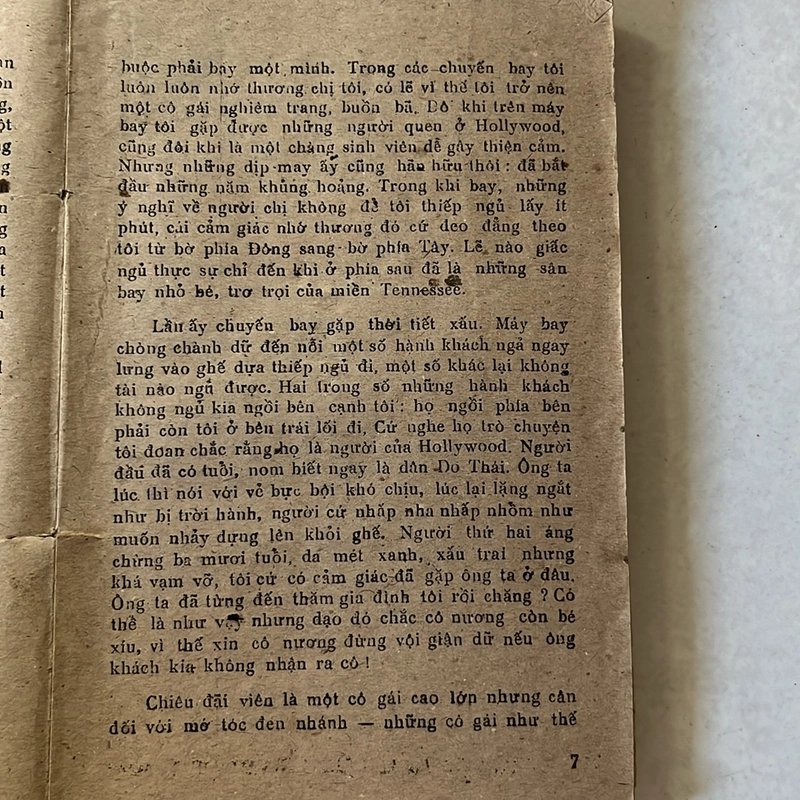 buộc phải bay một mình. Trong các chuyến bay tôi
luôn luôn nhớ thương chị tôi, có lẽ vì thế tôi trở nên
một cô gái nghiêm trang, buồn bã. Đô khi trên máy
bay tôi gặp được những người quen ở Hollywood,
cũng đôi khi là một chàng sinh viên dễ gây thiện cảm.
Nhưng những dịp may ấy cũng hãn hữu thôi : đã bắt
đầu những năm khủng hoảng. Trong khi bay, những
ý nghĩ về người chị không để tôi thiếp ngủ lấy ít
phút, cái cảm giác nhớ thương đó cứ deo đẳng theo
tôi từ bờ phía Đông sang bờ phía Tây. Lẽ nào giấc
ngủ thực sự chỉ đến khi ở phía sau đã là những sân
bay nhỏ bé, trơ trọi của miền Tennessee.
Lần ấy chuyến bay gặp thời tiết xấu. Máy bay
chòng chành dữ đến nỗi một số hành khách ngả ngay
lưng vào ghế dựa thiếp ngủ đi, một số khác lại không
tài nào ngủ được. Hai trong số những hành khách
không ngủ kia ngồi bên cạnh tôi : họ ngồi phía bên
phải còn tôi ở bên trái lối đi. Cứ nghe họ trò chuyện
tôi đoan chắc rằng họ là người của Hollywood. Người
đầu đã có tuổi, nom biết ngay là dân Do Thái. Ông ta
lúc thì nói với vẻ bực bội khó chịu, lúc lại lặng ngắt
như bị trời hành, người cứ nhấp nha nhấp nhồm như
muốn nhảy dựng lên khỏi ghế. Người thứ hai áng
chừng ba mươi tuổi, da mét xanh, xấu trai nhưng
khá vạm vỡ, tôi cứ có cảm giác đã gặp ông ta ở đâu.
Ông ta đã từng đến thăm gia đình tôi rồi chăng ? Có
thể là như vậy nhưng dạo dó chắc cô nương còn bé
xíu, vì thế xin cô nương đừng vội giận dữ nếu ông
khách kia không nhận ra cô !
Chiêu đãi viên là một cô gái cao lớp nhưng cân
đối với mớ tóc đen nhánh — những cô gái như thế
7